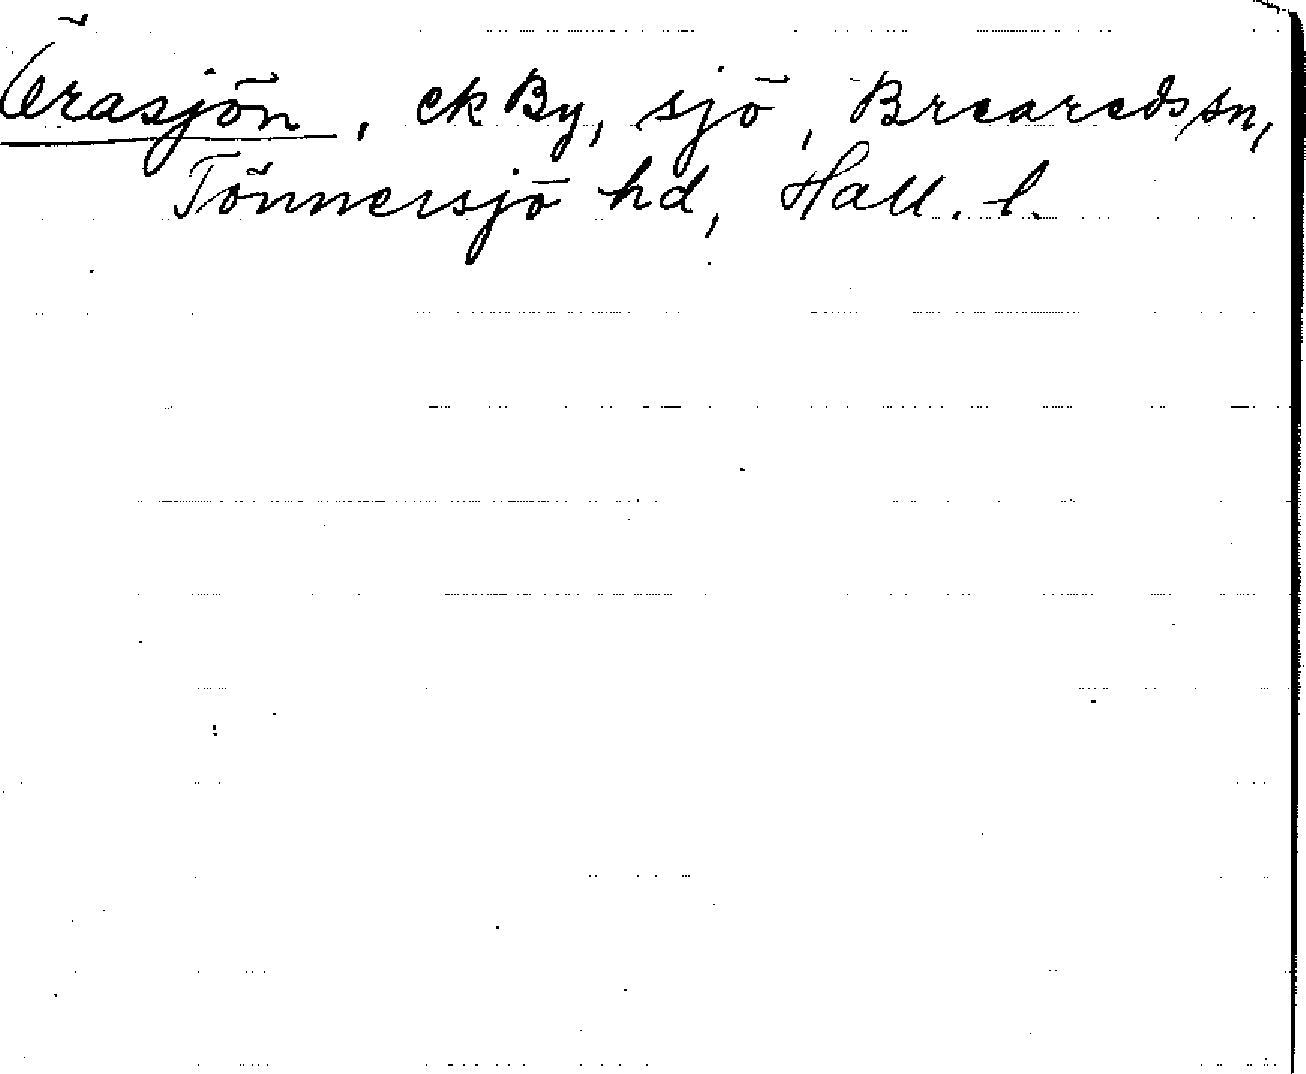 Örasjön, ek By, sjö, Breareds sn,
Tönnersjö hd, Hall. l.